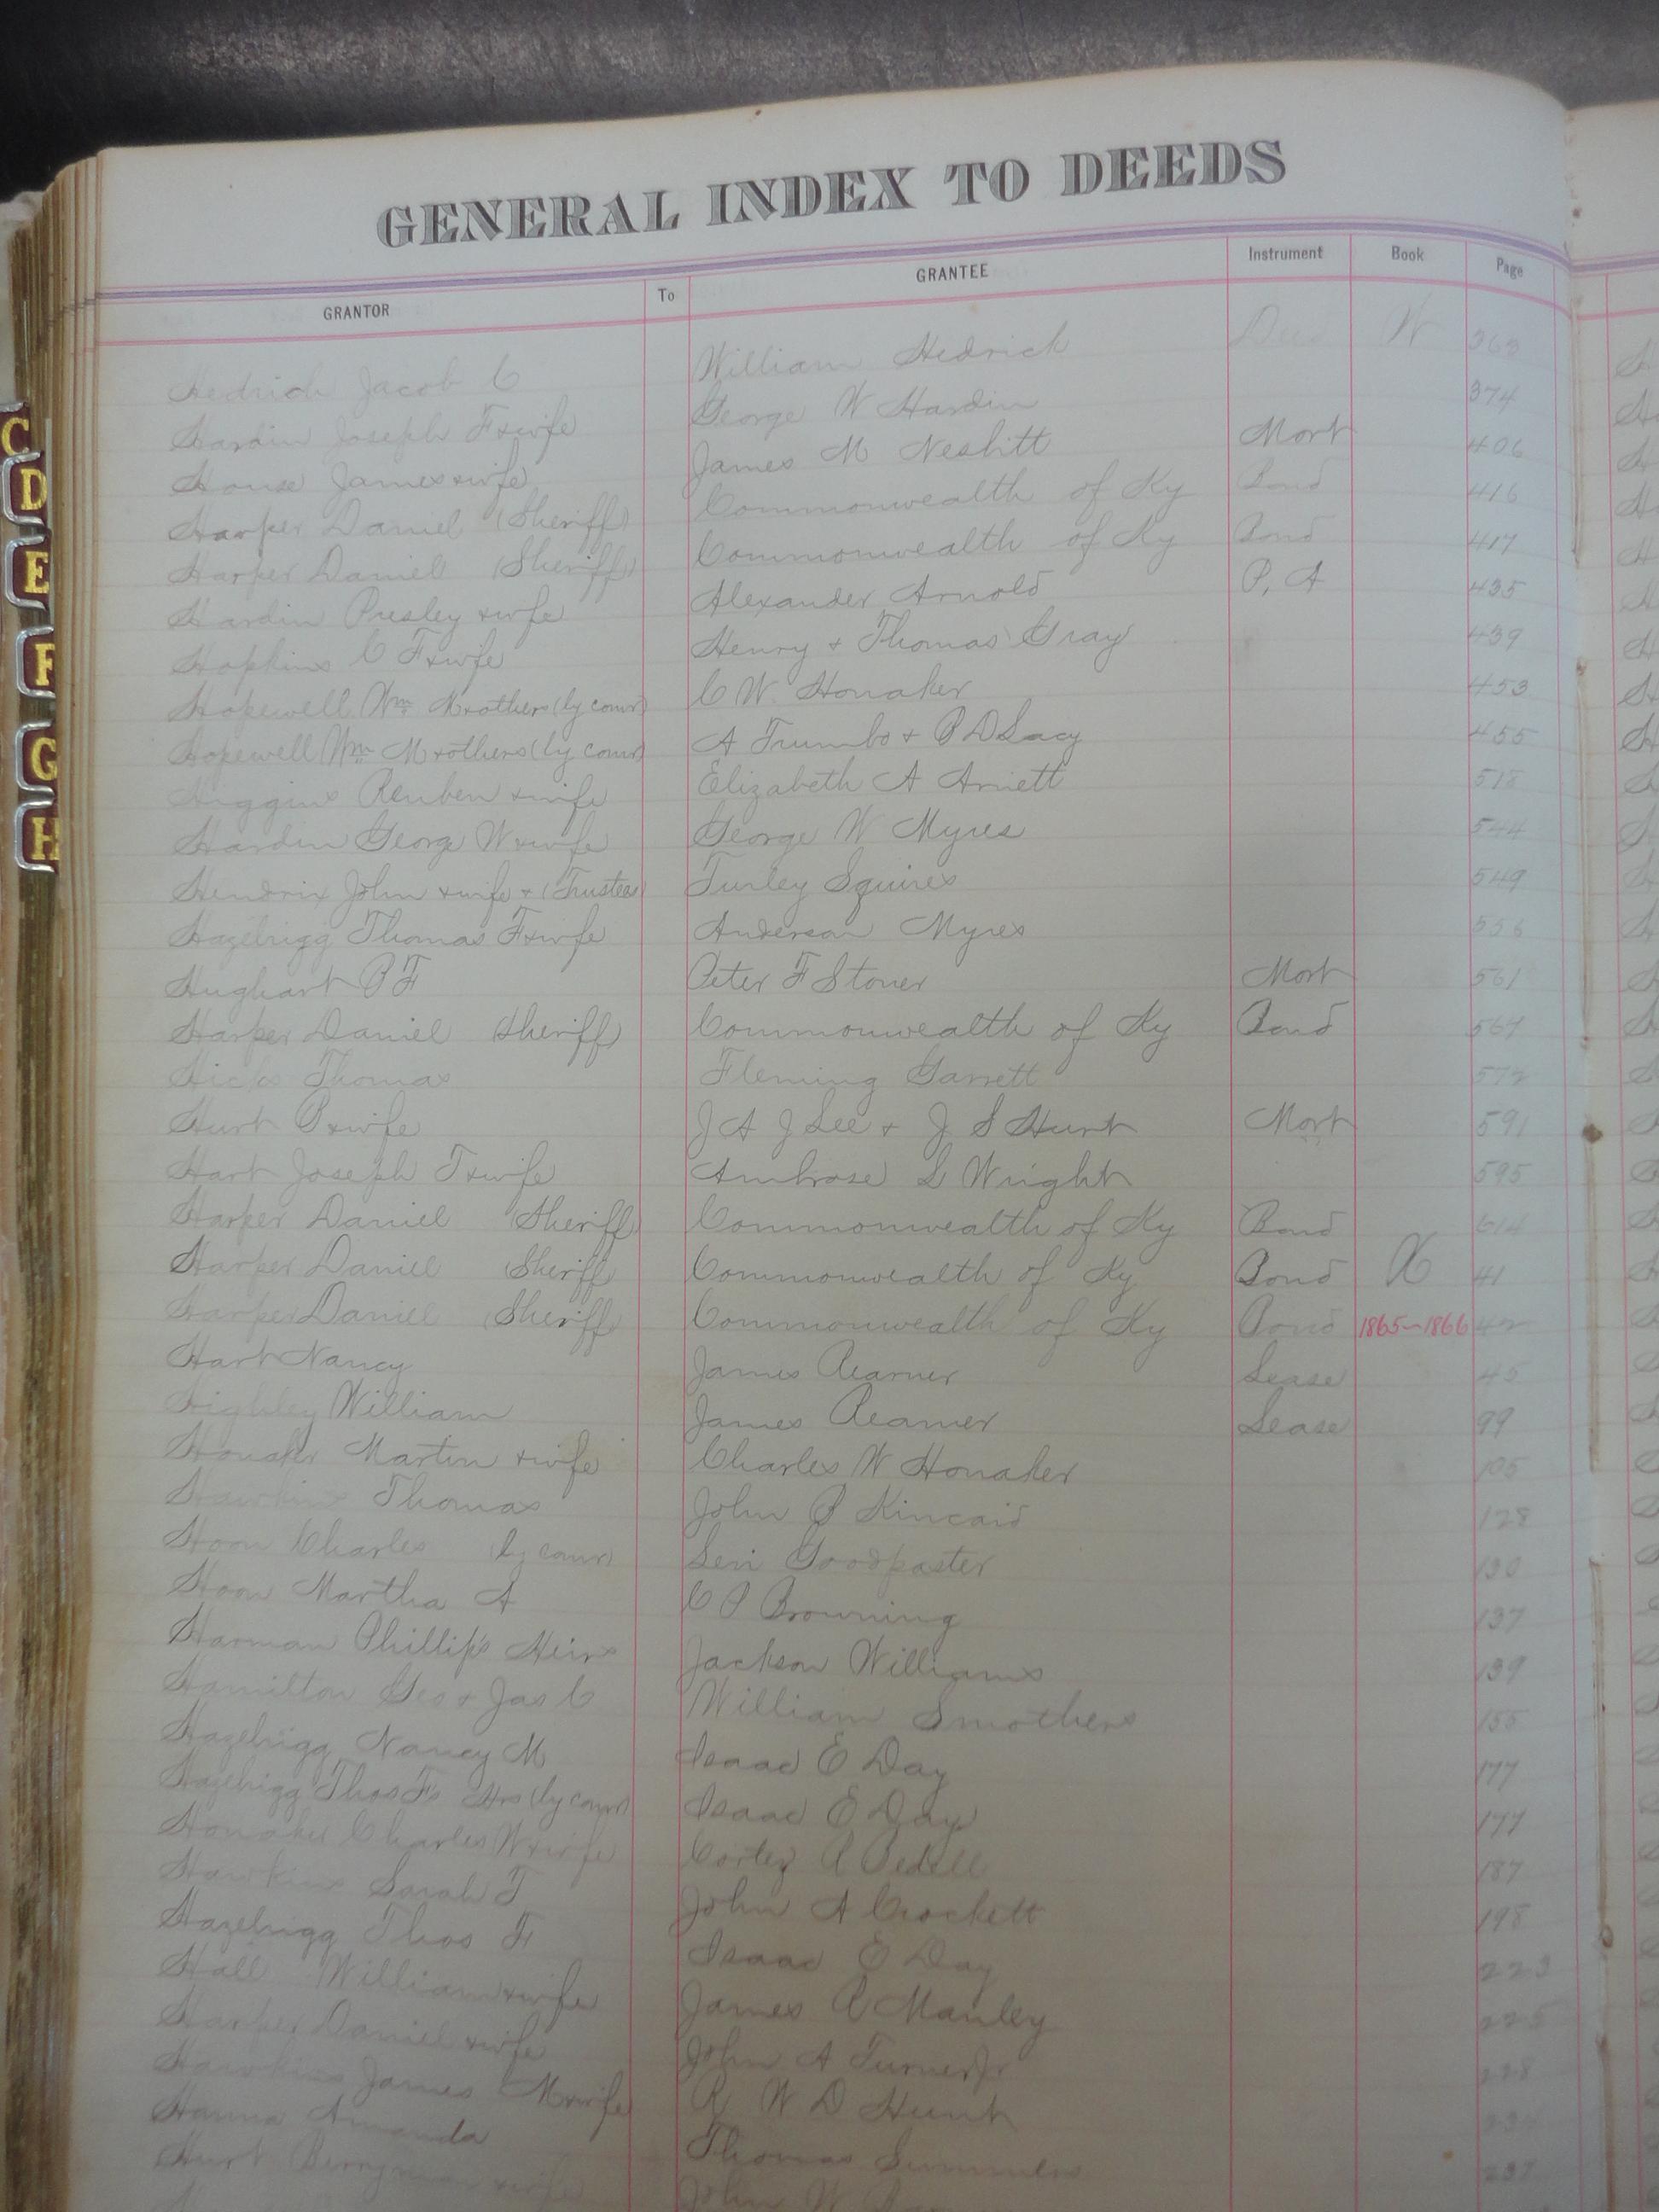 GENERAL INDEX TO DEEDS
GRANTOR To GRANTEE Instrument Book Page
Hedrick Jacob C William Hedrick Deed W 363
Hardin Joseph F & wife George W Hardin 374
House James & wife James M Nesbitt Mort 406
Harper Daniel (Sheriff) Commonwealth of Ky Bond 416
Harper Daniel (Sheriff) Commonwealth of Ky Bond 417
Hardin Presley & wife Alexander Arnold P. A 435
Hopkins C F & wife Henry & Thomas Gray 439
Hopewell Wm M & others (by comr) C W. Honaker 453
Hopewell Wm M & others (by comr) A Trumbo & P D Lacy 455
Higgins Reuben & wife Elizabeth A Arnett 518
Hardin George W & wife George W Myres 544
Hendrix John & wife & (Trustee) Turley Squires 549
Hazelrigg Thomas F & wife Anderson Myres 556
Hughart P F Peter F Stoner Mort 561
Harper Daniel (Sheriff) Commonwealth of Ky Bond 567
Hicks Thomas Fleming Garrett 572
Hurt P & wife J A J Lee & J S Hurt Mort 591
Hart Joseph T & wife Ambrose L Wright 595
Harper Daniel (Sheriff) Commonwealth of Ky Bond 614
Harper Daniel (Sheriff) Commonwealth of Ky Bond X 41
Harper Daniel (Sheriff) Commonwealth of Ky Bond 1865-1866 42
Hart Nancy James Reamer Lease 45
Highley William James Reamer Lease 99
Honaker Martin & wife Charles W Honaker 105
Hawkins Thomas John P Kincaid 128
Hoon Charles (by comr) Levi Goodpaster 130
Hoon Martha A C P Browning 137
Harman Phillip's Heirs Jackson Williams 139
Hamilton Geo & Jas C William Smothers 155
Hazelrigg Nancy M Isaac E Day 177
Hazelrigg Thos F's Hrs (by comr) Isaac E Day 177
Honaker Charles W & wife Cortez R Bedell 187
Hawkins Sarah T John A Crockett 198
Hazelrigg Thos F Isaac E Day 223
Hall William & wife James R Manley 225
Harper Daniel & wife John A Turner Jr 228
Hawkins James M & wife R W D Hunt
Hanna Amanda Thomas Summers 237
Hurt Berryman & wife John W
C
D
E
F
G
H